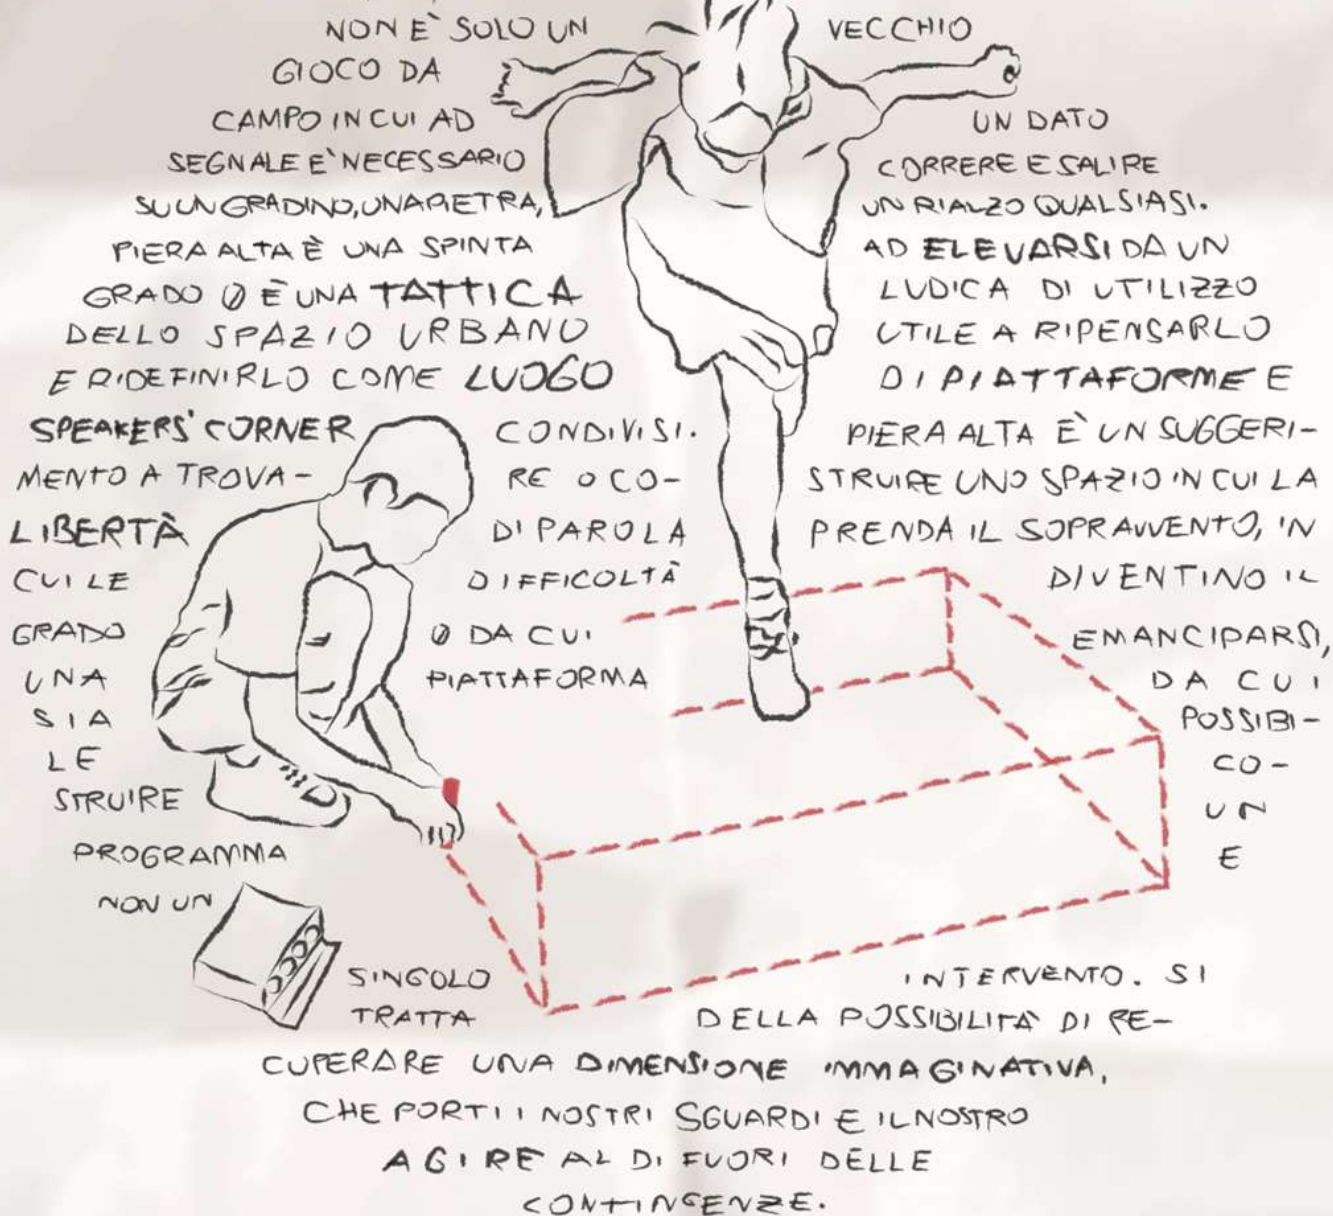 NON È SOLO UN VECCHIO
GIOCO DA
CAMPO IN CUI AD UN DATO
SEGNALE E' NECESSARIO CORRERE E SALIRE
SU UN GRADINO, UNA PIETRA, UN RIALZO QUALSIASI.
PIERA ALTA È UNA SPINTA AD ELEVARSI DA UN
GRADO 0 È UNA TATTICA LUDICA DI UTILIZZO
DELLO SPAZIO URBANO UTILE A RIPENSARLO
E RIDEFINIRLO COME LUOGO DI PIATTAFORME E
SPEAKERS' CORNER CONDIVISI. PIERA ALTA È UN SUGGERI-
MENTO A TROVA- RE O CO- STRUIRE UNO SPAZIO IN CUI LA
LIBERTÀ DI PAROLA PRENDA IL SOPRAVVENTO, IN
CUI LE DIFFICOLTÀ DIVENTINO IL
GRADO 0 DA CUI EMANCIPARSI,
UNA PIATTAFORMA DA CUI
SIA POSSIBI-
LE CO-
STRUIRE UN
PROGRAMMA E
NON UN
SINGOLO INTERVENTO. SI
TRATTA DELLA POSSIBILITÀ DI RE-
CUPERARE UNA DIMENSIONE IMMAGINATIVA,
CHE PORTI I NOSTRI SGUARDI E IL NOSTRO
AGIRE AL DI FUORI DELLE
CONTINGENZE.